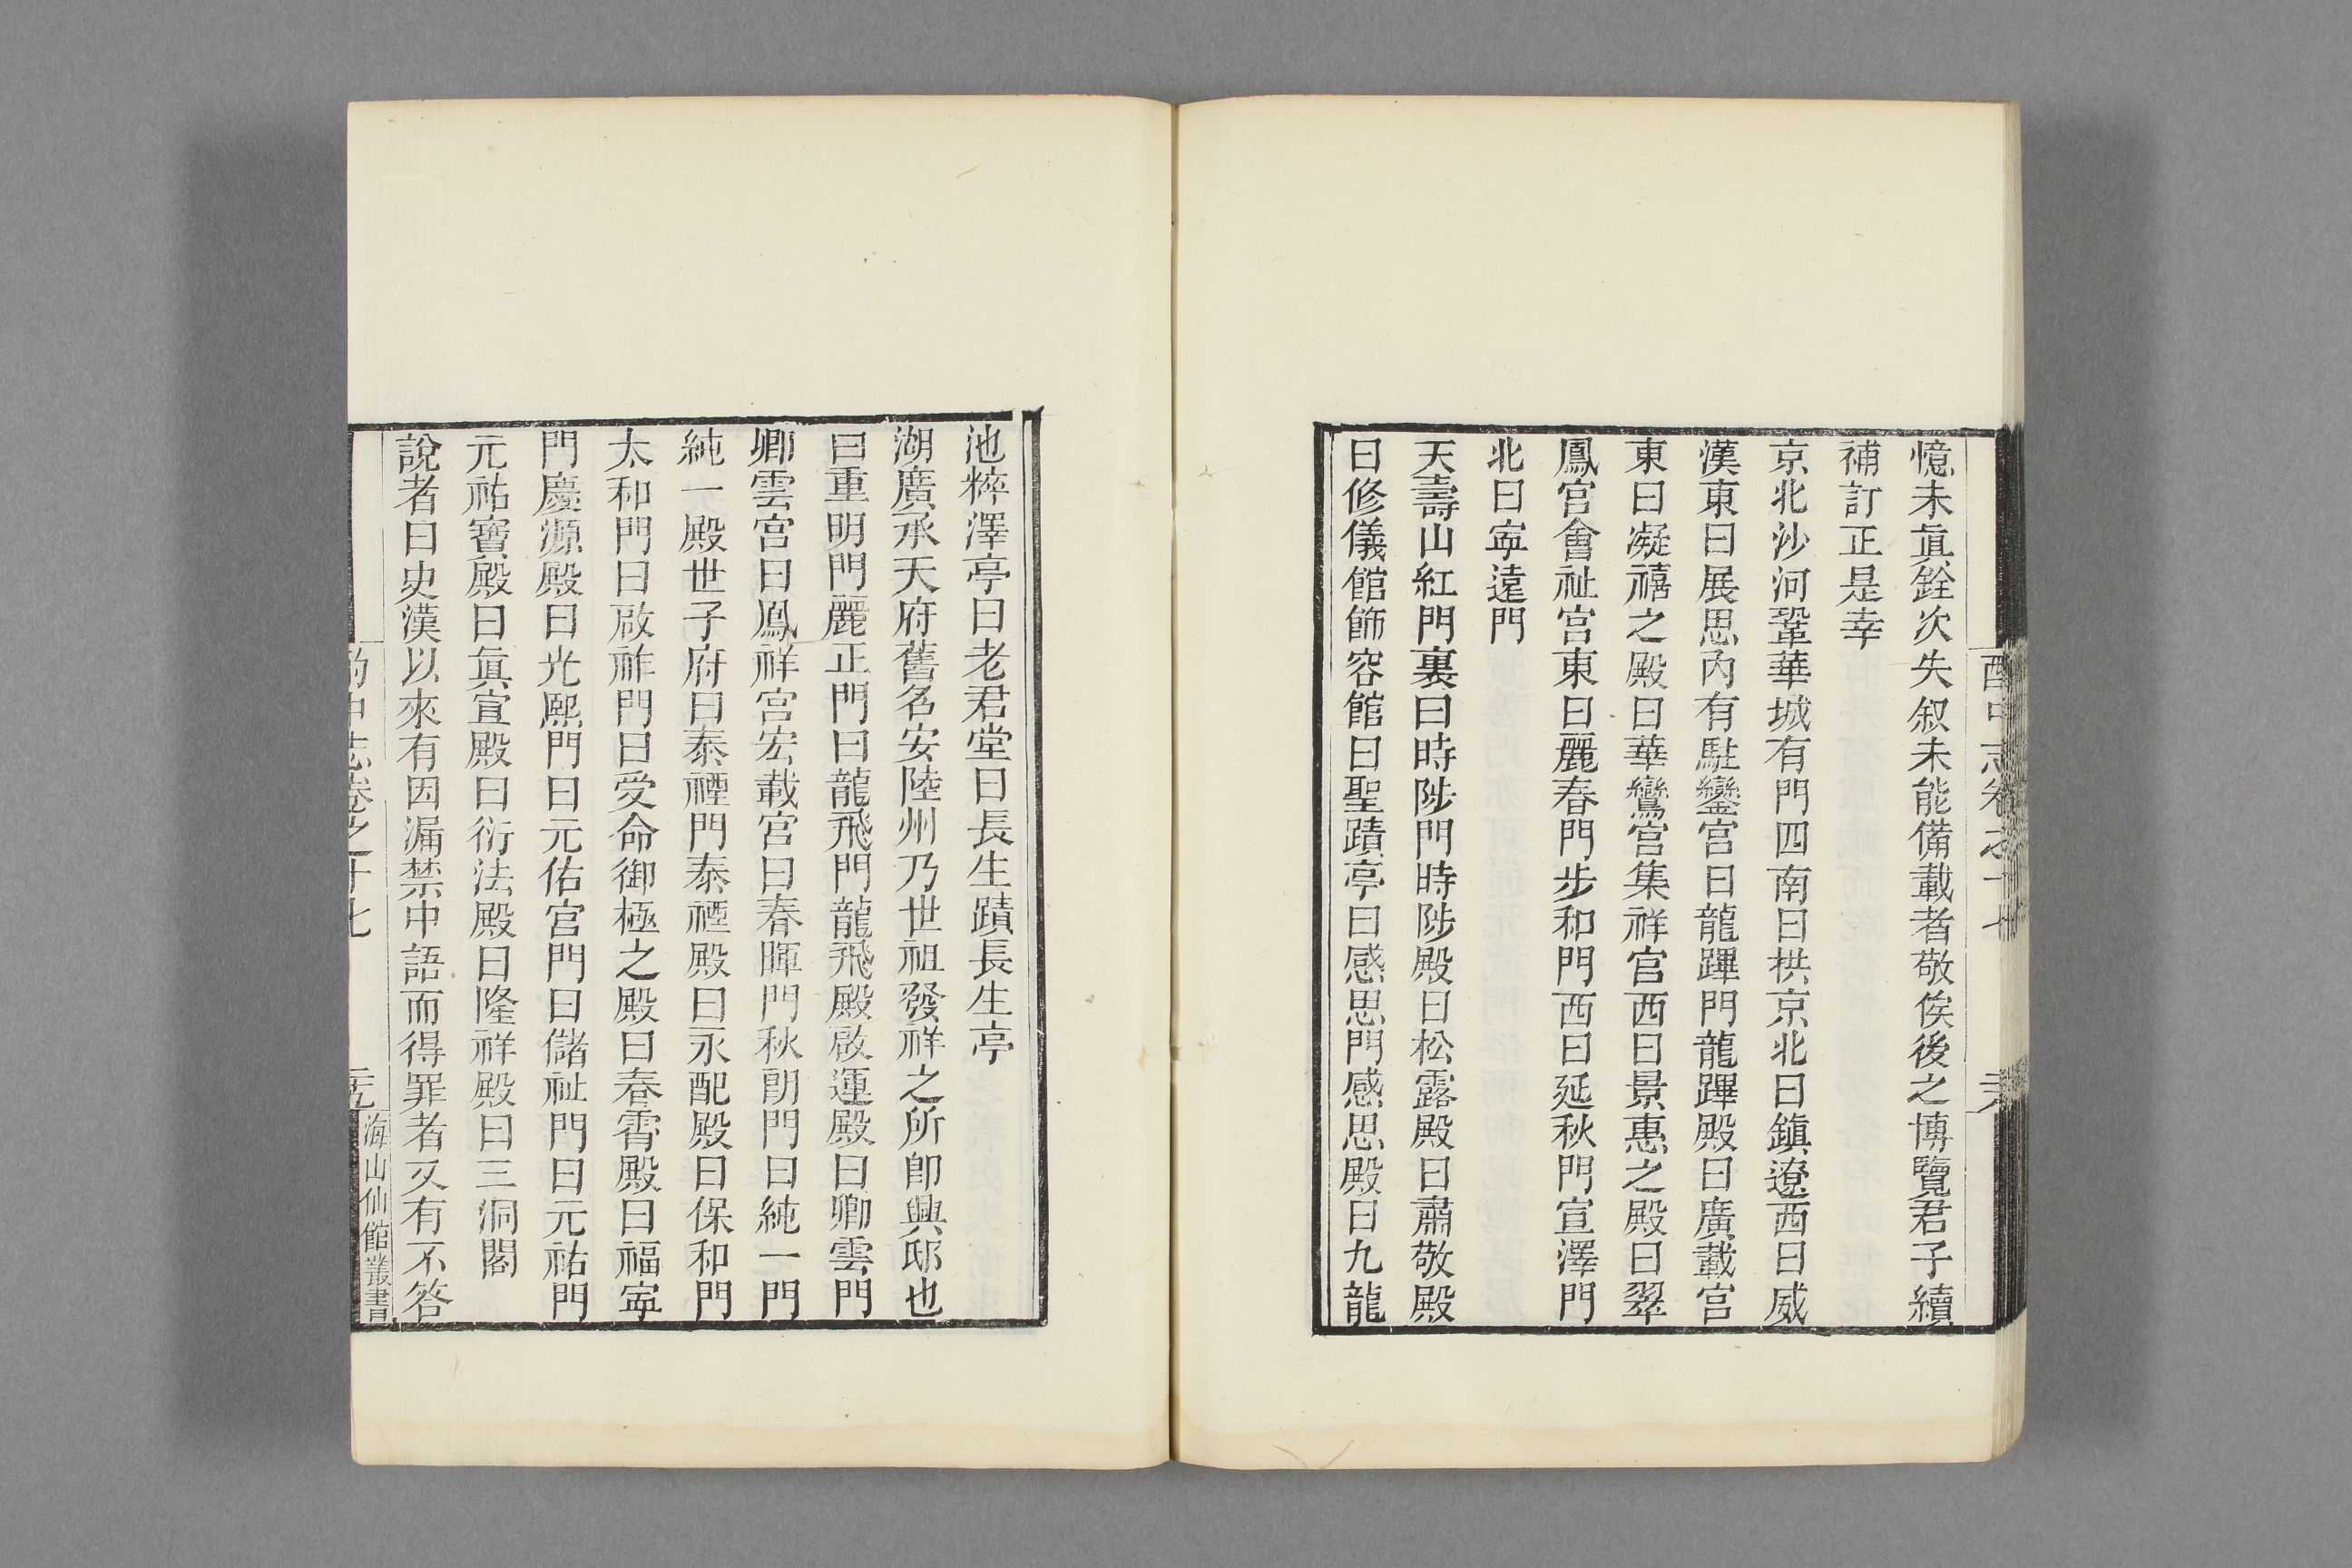 憶未眞銓次失叙未能備載者敬俟後之博覽君子續
補訂正是幸
京北沙河鞏華城有門四南曰拱京北曰鎮遼西曰威
漢東曰展思內有駐鑾宮曰龍蹕門龍蹕殿曰廣載宮
東曰凝禧之殿曰華鸞宮集祥宮西曰景惠之殿曰翠
鳳宮會祉宮東曰麗春門步和門西曰延秋門宣澤門
北曰寧遠門
天壽山紅門裏曰時陟門時陟殿曰松露殿曰肅敬殿
曰修儀館飾容館曰聖蹟亭曰感思門感思殿曰九龍
池粹澤亭曰老君堂曰長生蹟長生亭
湖廣承天府舊名安陸州乃世祖發祥之所卽興邸也
曰重明門麗正門曰龍飛門龍飛殿啟運殿曰卿雲門
卿雲宮曰鳳祥宮宏載宮曰春暉門秋朗門曰純一門
純一殿世子府曰泰禋門泰禋殿曰永配殿曰保和門
太和門曰啟祚門曰受命御極之殿曰春霄殿曰福寧
門慶源殿曰光熙門曰元佑宮門曰儲祉門曰元祐門
元祐寶殿曰眞宣殿曰衍法殿曰隆祥殿曰三洞閣
說者曰史漢以來有因漏禁中語而得罪者又有不答
酌中志卷之十七
海山仙館叢書